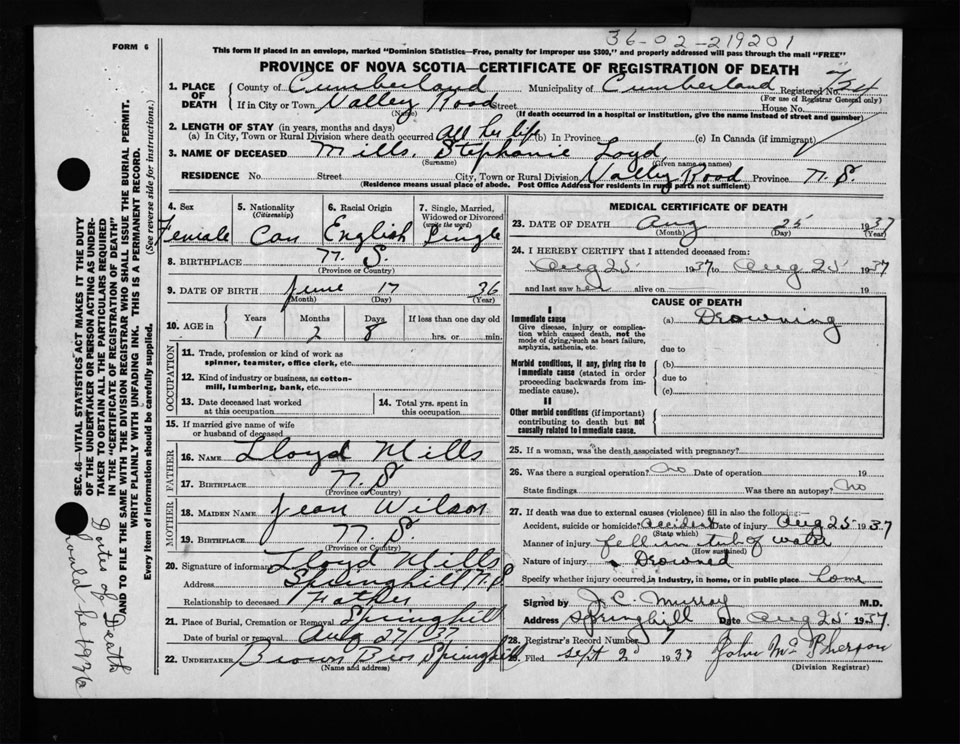 36-02-219201
FORM 6
This form if placed in an envelope, marked "Dominion Statistics—Free, penalty for improper use $300," and properly addressed will pass through the mail "FREE"
PROVINCE OF NOVA SCOTIA—CERTIFICATE OF REGISTRATION OF DEATH
1. PLACE OF DEATH County of Cumberland Municipality of Cumberland Registered No. 734
(For use of Registrar General only)
If in City or Town Valley Road Street House No.
(Name) (If death occurred in a hospital or institution, give the name instead of street and number)
2. LENGTH OF STAY (in years, months and days)
(a) In City, Town or Rural Division where death occurred All her life (b) In Province (c) In Canada (if immigrant)
3. NAME OF DECEASED Mills, Stephanie Loyd
(Surname) (Given name or names)
RESIDENCE No. Street City, Town or Rural Division Valley Road Province N.S.
(Residence means usual place of abode. Post Office Address for residents in rural parts not sufficient)
4. Sex 5. Nationality (Citizenship) 6. Racial Origin 7. Single, Married, Widowed or Divorced (write the word)
Female Can English Single
8. BIRTHPLACE N.S.
(Province or Country)
9. DATE OF BIRTH June 17 36
(Month) (Day) (Year)
10. AGE in Years Months Days If less than one day old
1 2 8 hrs. or min.
OCCUPATION
11. Trade, profession or kind of work as spinner, teamster, office clerk, etc.
12. Kind of industry or business, as cotton-mill, lumbering, bank, etc.
13. Date deceased last worked at this occupation
14. Total yrs. spent in this occupation
15. If married give name of wife or husband of deceased
FATHER
16. NAME Lloyd Mills
17. BIRTHPLACE N.S.
(Province or Country)
MOTHER
18. MAIDEN NAME Jean Wilson
19. BIRTHPLACE N.S.
(Province or Country)
20. Signature of informant Lloyd Mills
Address Springhill N.S
Relationship to deceased Father
21. Place of Burial, Cremation or Removal Springhill
Date of burial or removal Aug 27/37
22. UNDERTAKER Brown Bros Springhill
(Name and address)
MEDICAL CERTIFICATE OF DEATH
23. DATE OF DEATH Aug 25 1937
(Month) (Day) (Year)
24. I HEREBY CERTIFY that I attended deceased from:
Aug 25 1937 to Aug 25 1937
and last saw her alive on 19
CAUSE OF DEATH
I
Immediate cause (a) Drowning
Give disease, injury or complication which caused death, not the mode of dying, such as heart failure, asphyxia, asthenia, etc.
due to
Morbid conditions, if any, giving rise to immediate cause (stated in order proceeding backwards from immediate cause).
(b)
due to
(c)
II
Other morbid conditions (if important) contributing to death but not causally related to immediate cause.
25. If a woman, was the death associated with pregnancy?
26. Was there a surgical operation? no Date of operation 19
State findings Was there an autopsy? no
27. If death was due to external causes (violence) fill in also the following:
Accident, suicide or homicide? Accident Date of injury Aug 25 1937
(State which)
Manner of injury fell in tub of water
(How sustained)
Nature of injury Drowned
Specify whether injury occurred in Industry, in home, or in public place home
Signed by J. C. Murray M.D.
Address Springhill Date Aug 25 1937
28. Registrar's Record Number 7
29. Filed Sept 2d 1937 John McPherson
(Division Registrar)
SEC. 46—VITAL STATISTICS ACT MAKES IT THE DUTY
OF THE UNDERTAKER OR PERSON ACTING AS UNDER-
TAKER TO OBTAIN ALL THE PARTICULARS REQUIRED
IN THE "CERTIFICATE OF REGISTRATION OF DEATH"
AND TO FILE THE SAME WITH THE DIVISION REGISTRAR WHO SHALL ISSUE THE BURIAL PERMIT.
WRITE PLAINLY WITH UNFADING INK. THIS IS A PERMANENT RECORD.
Every item of information should be carefully supplied.
(See reverse side for instructions.)
Dates of Death
should be 1936